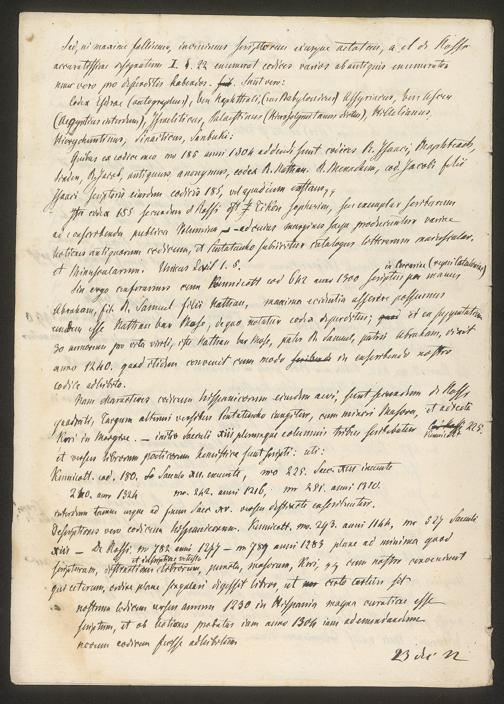 Sed, ni maxime fallimur, invenimus scriptorem eiusque aetatem, a cl. de Rossi
accuratissime designatum I. §. 22 enumerat codices varios ab antiquis enumeratos
nunc vero pro deperditis habendos. Sunt vero:
Codex Esdrae (autographus), Ben Naphthali, (sive Babylonicus) Assyriacus, Ben Ascer
(Aegyptius interdum), Israeliticus, Palaestinus (Hierosolymitanus dictus), Hillelianus,
Hierychuntinus, Sinaiticus, Sanbuki:
Quibus ex codice suo no 185 anni 1304 addendi sunt codices R. Isaaci,
R. Jacob, antiquus anonymus, codex R. Nathan. R. Menachem, cod. Jacobi filii
Isaaci scriptoris eiusdem codicis 185,
codex 185 secundum de Rossi est Tikon Sopherim, seu exemplar scribarum
ad conscribenda publica Volumina, ad cuius margines saepe producuntur variae
lectiones antiquorum codicum, et Pentateucho subiicitur catalogus litterarum maiuscular.
et Minuscularum.
Sin ergo conferamus cum Kennicott cod 642 anno 1300 scriptus in Cervaria (regni Cataloniae) per manus
Abraham, fil. R. Samuel filii Nathan, maxima evidentia asserere possumus
eundem esse Nathan bar Mose, de quo notatur codex deperditus; ut ex supputatione
30 annorum pro vita virili, iste Nathan bar Mose, pater R. Samuel, patris Abraham, vixit
anno 1240. quod etiam convenit cum modo scribendi in conscribendo nostro
codice adhibito.
Nam characteres codicum hispanicorum eiusdem aevi, sunt secundum de Rossi
quadrati, Targum alternis versibus Pentateucho iungitur, cum minori Masora, et adiecto
Keri in Margine. initio saeculi xiii plerumque columnis tribus scribebatur Kennicott 225.
et versus librorum poeticorum hemistice sunt scripti: uti:
Kennicott. cod. 180. de Saeculo xii. exeunte, no 225. Saec. xiii ineunte
240. ann 1324 no. 242. anni 1216, no 281. anni 1310.
interdum tamen usque ad finem Saec. xv. versus distincte conscribuntur.
Descriptiones vero codicum hispanicorum. Kennicott. no. 293. anni 1144, no 527 Saeculi
xiii — De Rossi, no 782 anni 1277 — no 789 anni 1283 plane ad minima quod
scripturam, et inscriptiones distractiones librorum, puncta, masoram, Keri, cum nostro conveniunt
qui ceterum, ordine plane singulari digessit libros, ut certo certius sit
nostrum codicem versus annum 1230 in Hispania magna curatione esse
scriptum, et ob lectiones probatas iam anno 1304 iam ad emendandum
novum codicem fuisse adhibitum
23 dec 22